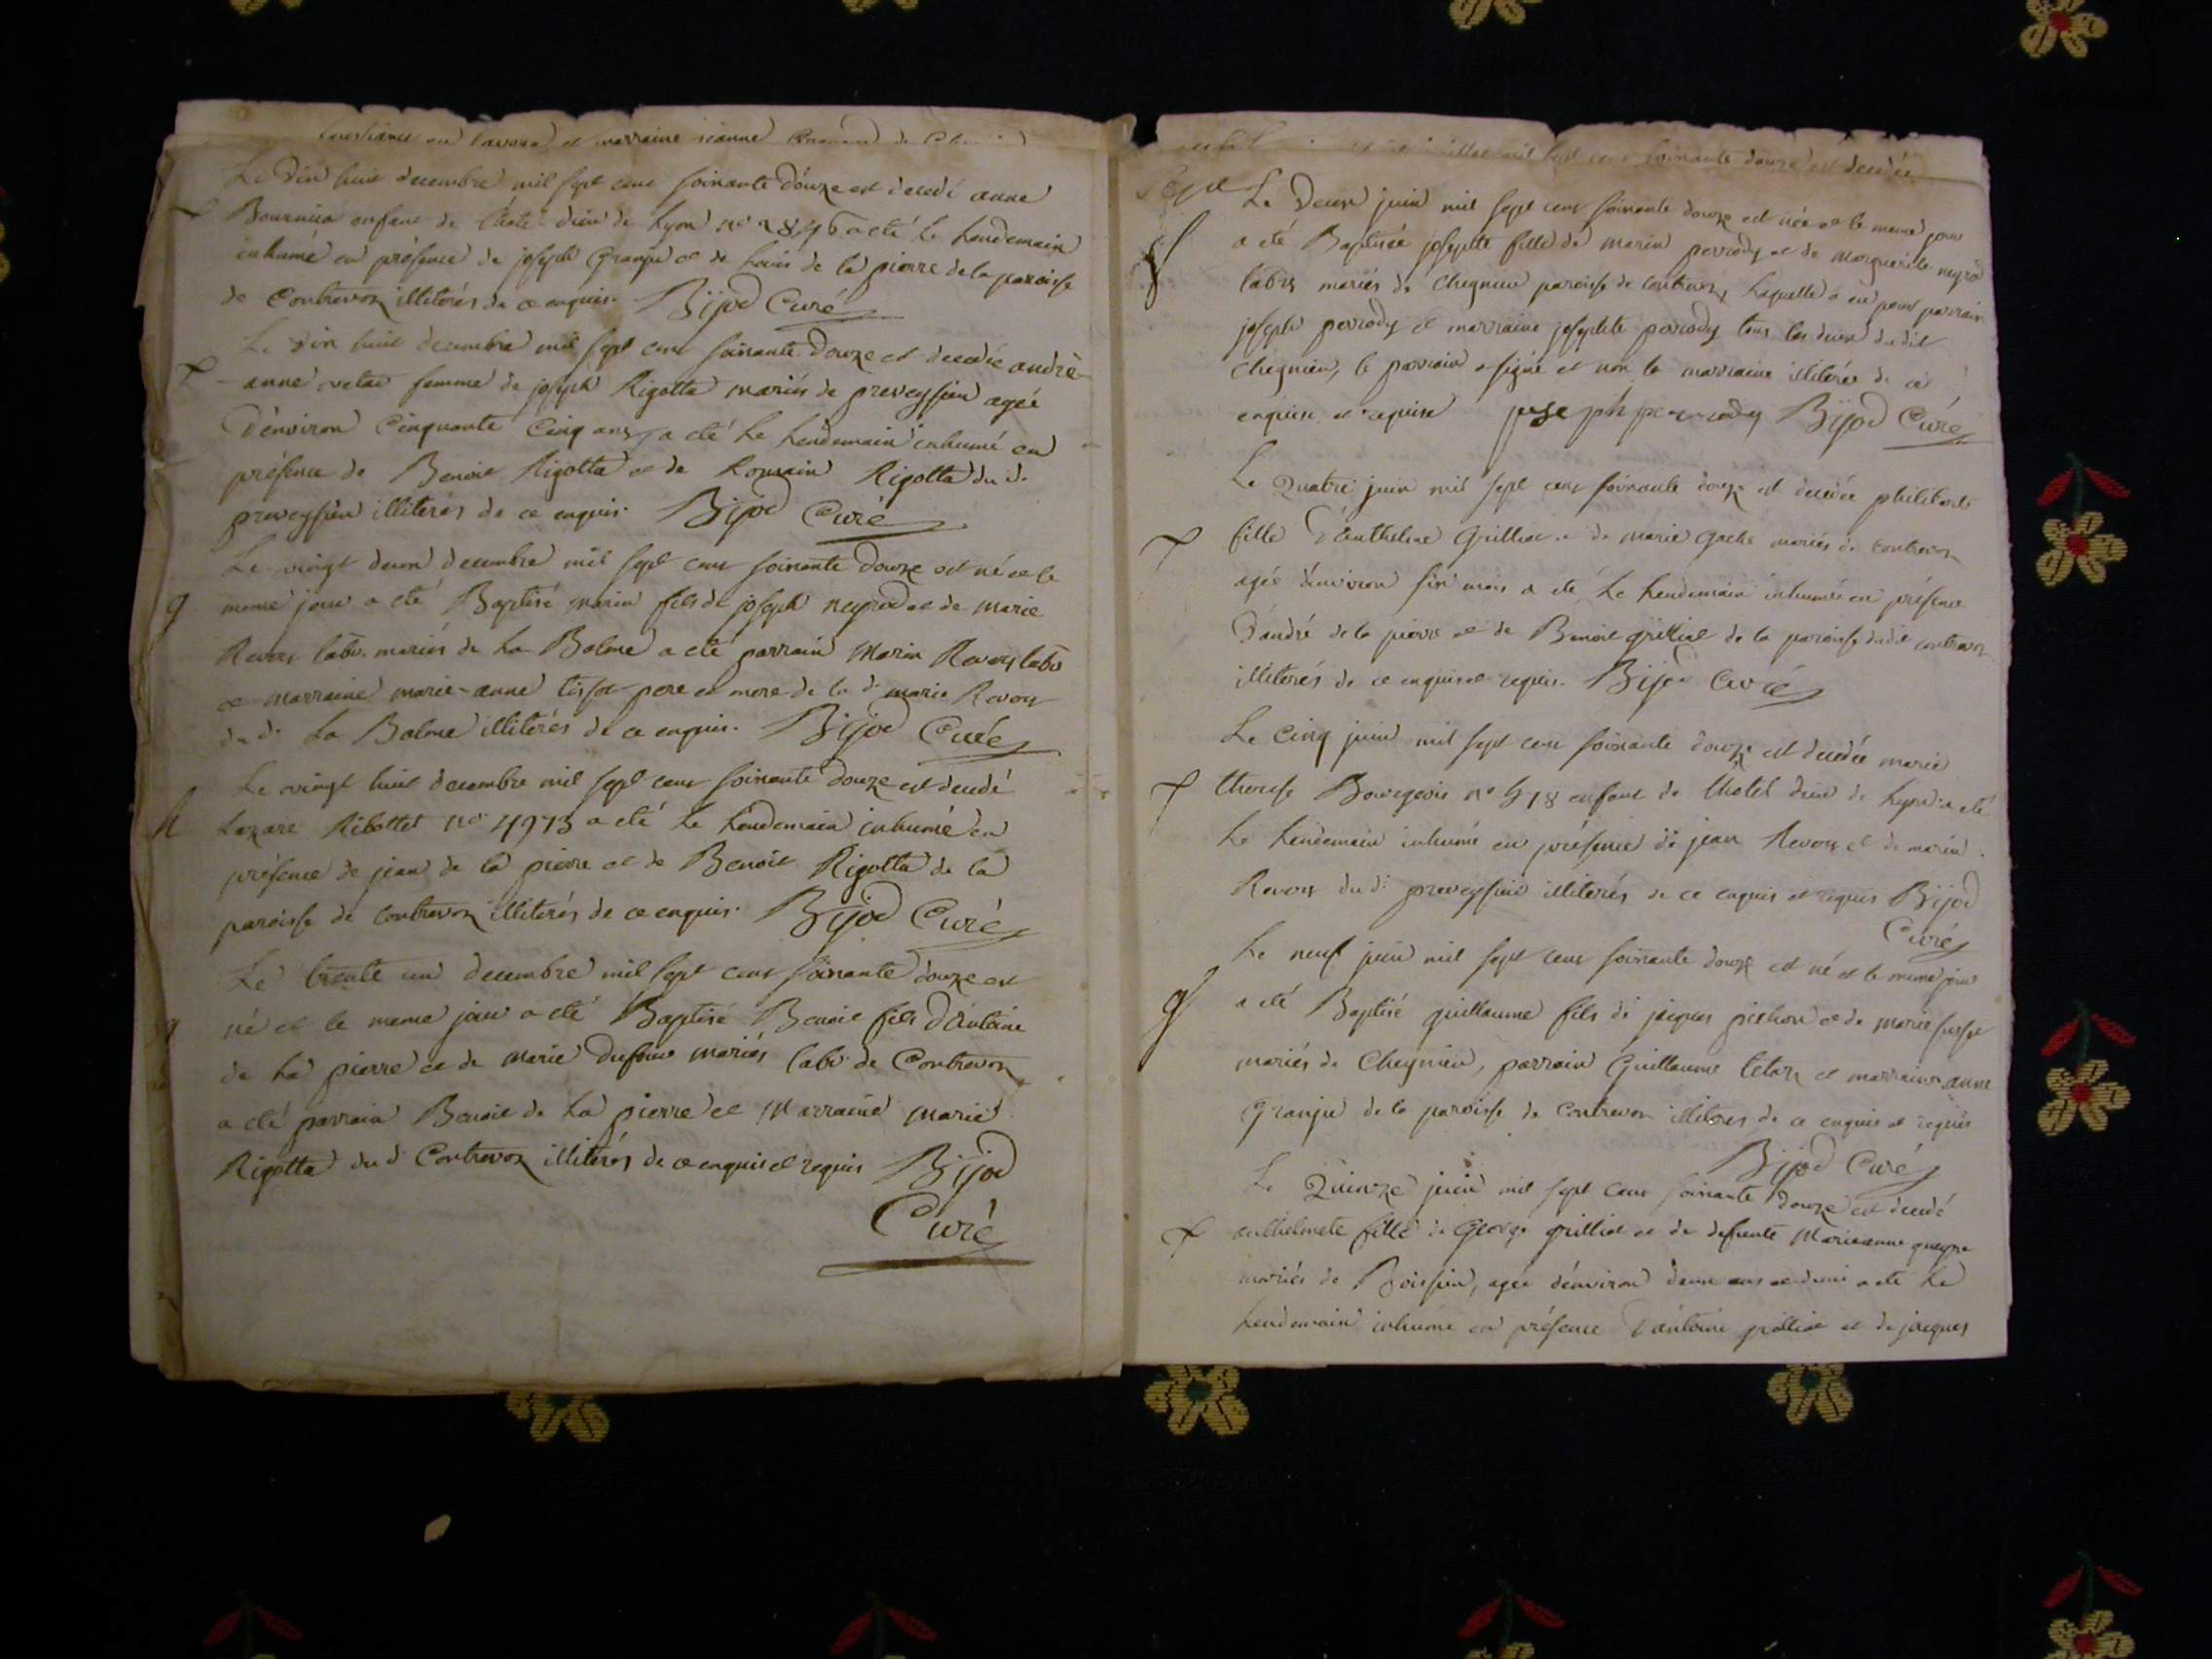 et marraine jeanne
Le dix huit decembre mil sept cent soixante douze est decedé anne
enfant de l'hotel dieu de Lyon n° 2846 a eté le lendemain
inhumé en présence de joseph Granju et de Louis de la pierre de la paroisse
de Contrevoz illiterés de ce enquis. Bijod Curé
Le dix huit decembre mil sept cent soixante douze est decedée andré-
anne femme de joseph Rigotta mariés de preveyssieu agée
d'environ Cinquante Cinq ans, a eté le lendemain inhumé en
présence de Benoit Rigotta et de Romain Rigotta du d.
preveyssieu illiterés de ce enquis. Bijod Curé
Le vingt deux decembre mil sept cent soixante douze est né et le
g meme jour a eté Baptisé marin fils de joseph neyrod et de marie
Revoy labr. mariés de La Balme a eté parrain Marin Revoy labr
et marraine marie-anne tissot pere et mere de la d. marie Revoy
du d. La Balme illiterés de ce enquis. Bijod Curé
Le vingt huit decembre mil sept cent soixante douze est decedé
Lazare Ribottet n° 4973 a eté le lendemain inhumé en
présence de jean de la pierre et de Benoit Rigotta de la
paroisse de Contrevoz illiterés de ce enquis. Bijod Curé
Le trente un decembre mil sept cent soixante douze est
g né et le meme jour a eté Baptisé Benoit fils d'Antoine
de La pierre et de Marie Dufour mariés labr de Contrevoz
a eté parrain Benoit de La pierre et Marraine Marie
Rigotta du d. Contrevoz illiterés de ce enquis et requis Bijod
Curé
mil sept cent soixante douze est decedée
Le Deux juin mil sept cent soixante douze est née et le meme jour
a été Baptisée josephte fille de marin perrody et de marguerite
labrs mariés de Chegnieu paroisse de contrevoz, laquelle a eu pour parrain
joseph perrody et marraine josephte perrody tous les deux dudit
Chegnieu, le parrain a signé et non la marraine illiterée de ce
enquise et requise joseph perrody Bijod Curé
Le Quatre juin mil sept cent soixante douze est decedée philiberte
fille d'Anthelme Grilliet et de marie Gache mariés de contrevoz
agée d'environ six mois a eté le lendemain inhumée en présence
d'andré de la pierre et de Benoit grilliet de la paroisse dudit contrevoz
illiterés de ce enquis et requis. Bijod Curé
Le Cinq juin mil sept cent soixante douze est decedée marie
therese Bourgeois n° 518 enfant de l'hotel dieu de Lyon a eté
le lendemain inhumé en présence de jean Revoy et de marin
Revoy du d. preveyssieu illiterés de ce enquis et requis Bijod
Curé
Le neuf juin mil sept cent soixante douze est né et le meme jour
a été Baptisé guillaume fils de jacques pichon et de marie
mariés de Chegnieu, parrain Guillaume et marraine anne
Granju de la paroisse de Contrevoz illiterés de ce enquis et requis
Bijod Curé
Le Quinze juin mil sept cent soixante douze est decedé
anthelmete fille de George grilliet et de defunte Marieanne
mariés de Boissieu, agée d'environ deux ans et demi a eté le
lendemain inhumé en présence d'antoine grilliet et de jacques